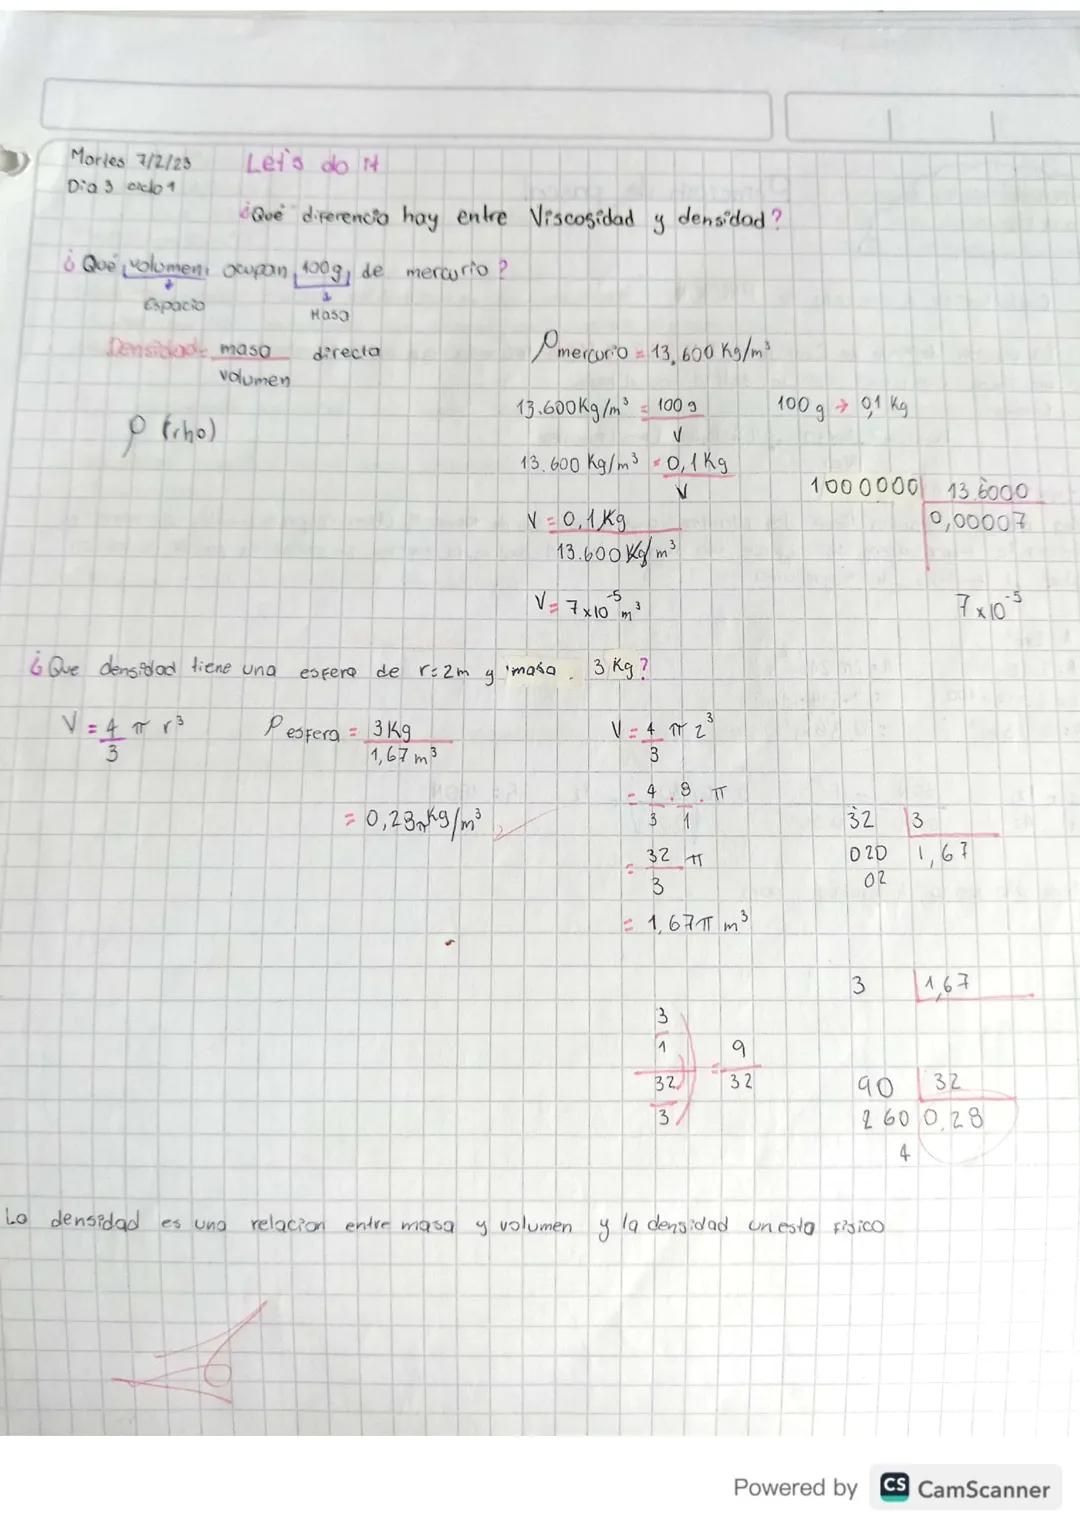 Martes 7/2/23
Let's do it
Dia 3 ciclo 1
¿Qué diferencia hay entre Viscosidad y densidad?
¿Qué volumen ocupan 100g de mercurio?
Espacio
Masa
Densidad= masa directa
volumen
ρ mercurio = 13,600 Kg/m³
ρ (rho)
13.600Kg/m³ = 100g
V
100g → 0,1 Kg
13.600 Kg/m³ = 0,1Kg
V
1000000 13.6000
0,00007
V = 0,1Kg
13.600Kg/m³
V= 7x10⁻⁵m³
7x10⁻⁵
¿Que densidad tiene una esfera de r=2m y masa 3 Kg?
V = 4 π r³
3
ρ esfera = 3Kg
1,67 m³
= 0,28π Kg/m³
V = 4 π 2³
3
= 4 . 8 . π
3 1
= 32 π
3
= 1,67π m³
32 3
020 1,67
02
3 1,67
3
1
32
3
= 9
32
90 32
260 0,28
4
Lo densidad es una relacion entre masa y volumen y la densidad un esta fisico
Powered by CS CamScanner